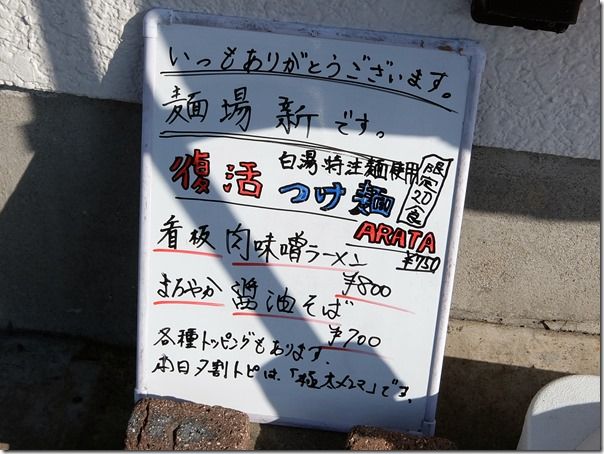 いつもありがとうございます。
麺場 新です。
白湯・特注麺使用
限定20食
復活 つけ麺
ARATA
¥750
看板 肉味噌ラーメン
¥800
まろやか 醤油そば
¥700
各種トッピングもあります。
本日夕割トピは、「極太メンマ」です。